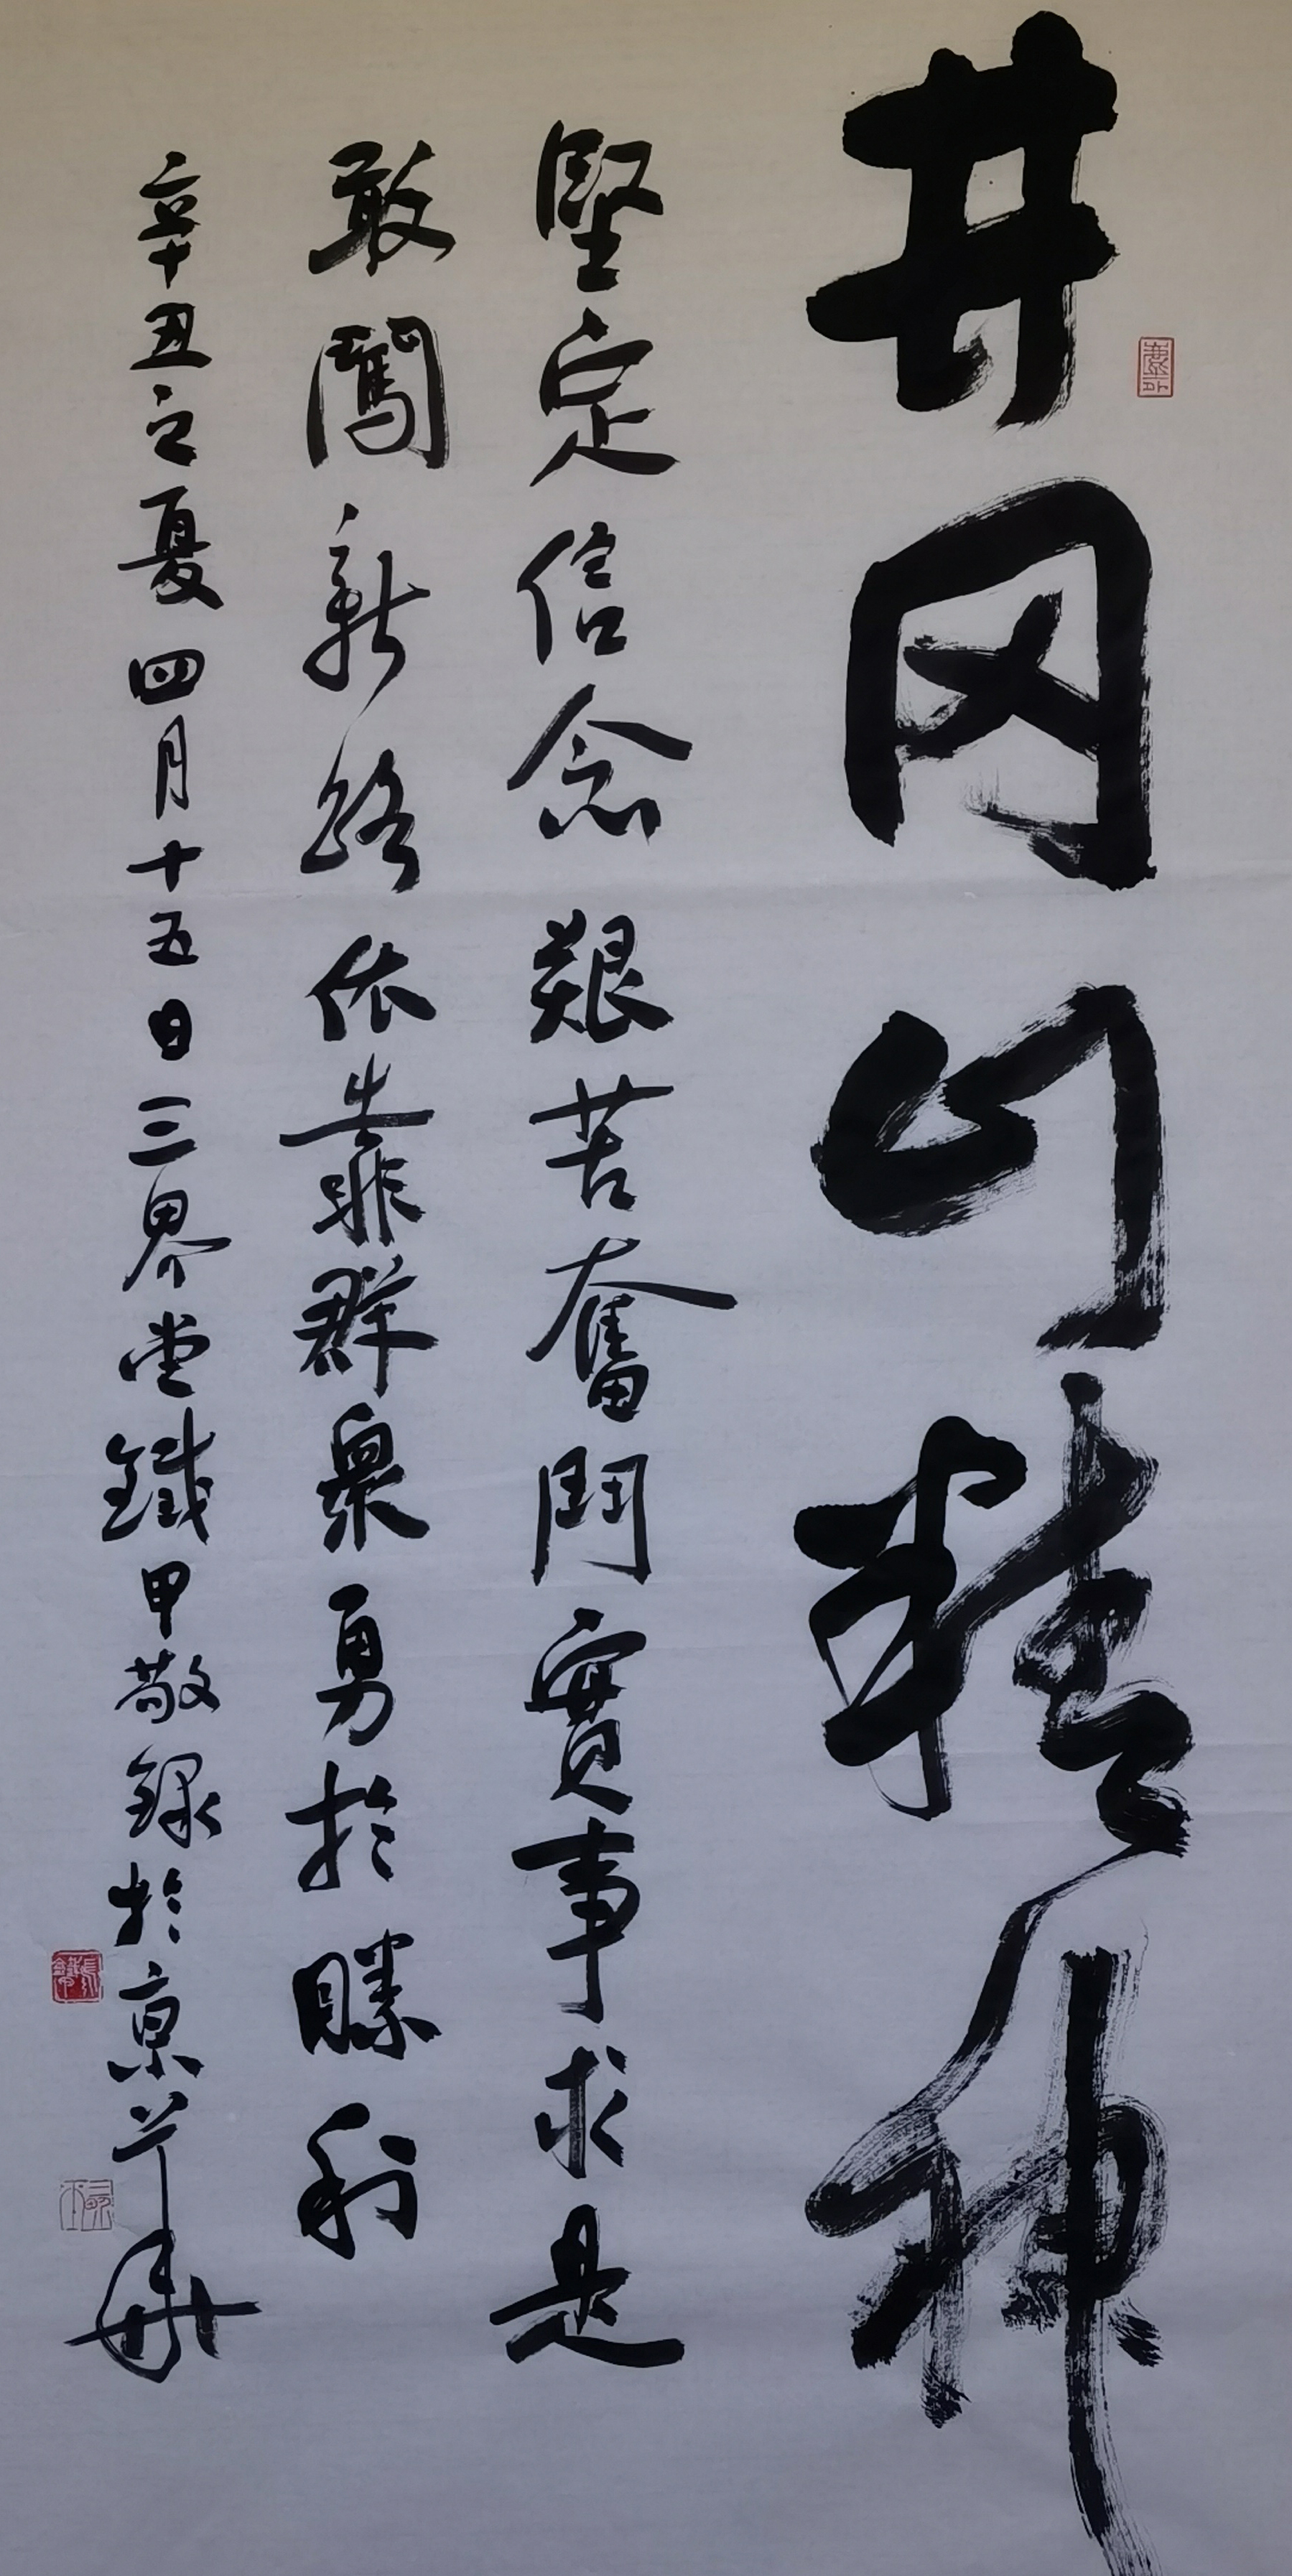 井冈山精神
堅定信念艱苦奮鬥實事求是
敢闖新路依靠群衆勇於勝利
辛丑之夏四月十五日三界堂鐵甲敬錄於京華